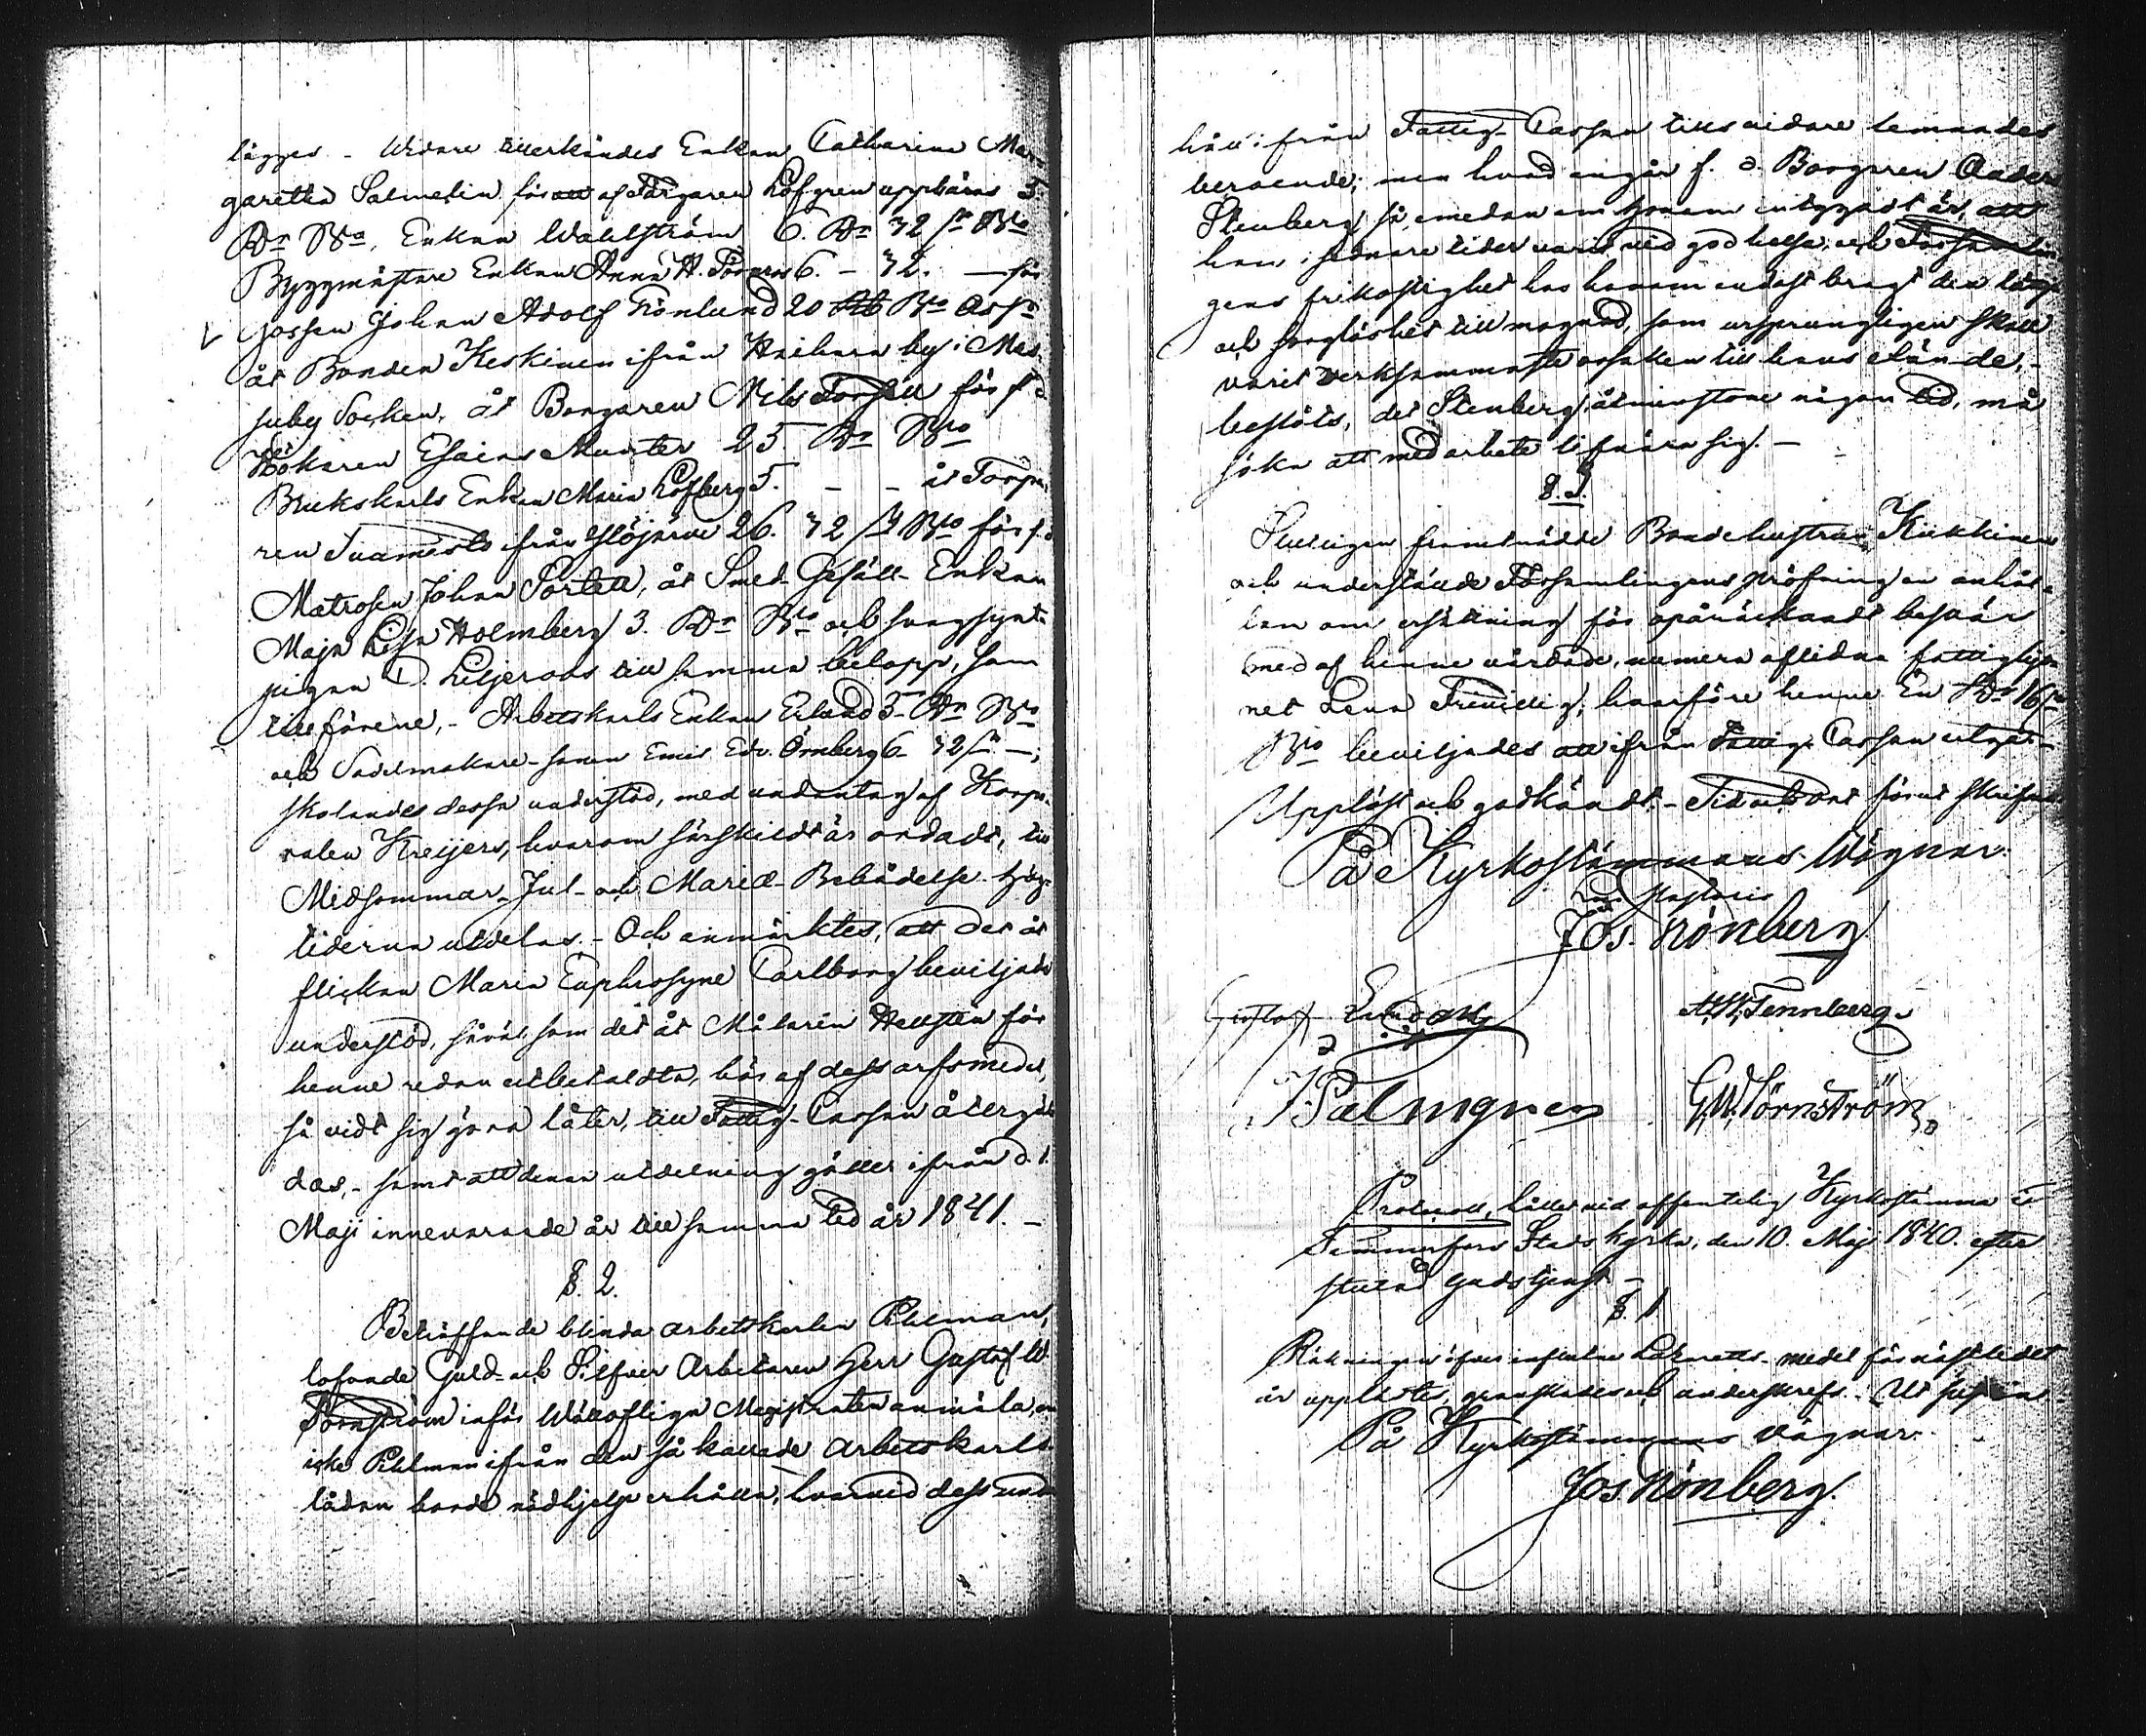 lägges. – Widare tillerkändes Enkan Catharina Mar-
garetha Salmelin för att af Färgaren Löfgren uppbäras 5.
Rdr Bco, Enkan Wahlström 6. Rdr 32 sk Bco
Byggmästare Enkan Anna H. 6. – 32. — för
Gossen Johan Adolf Grönlund 20 Rb Bco Assr
åt Bonden Keskinen ifrån Haihara by i Mes-
suby Socken, åt Borgaren Nils Forsell för f d
Hökaren Esaias Munter 25 Rdr Bco
Brukskarls Enkan Maria Löfberg 5. – – åt Torpa-
ren ifrån Ylöjärvi 26. 32 sk Bco för f. d
Matrosen Johan, åt Smed-Gesäll-Enkan
Maja Lisa Holmberg 3. Rdr Bco och svagsynta
pigan D. Liljeroos till samma belopp, som
tillförene, – Arbetskarls Enkan Erlund 5– Rdr Bco
och Sadelmakare-sonen Emil Edv. Örnberg 6– 32 sk —;
skolandes dessa understöd, med undantag af Korpo-
ralen Kreijers, hvarom särskildt är ordadt, till
Midsommar- Jul- och Mariæ-Bebådelse-högs-
tiderna utdelas. – Och anmärktes, att det åt
flickan Maria Euphrosyne Carlborg beviljade
understöd, såväl som det åt Målaren Hellsten för
henne redan utbetaldta, bör af dess arfsmedel,
så vidt sig göra låter, till Fattig-Cassan återgäl-
das, – samt att denna utdelning gäller ifrån d. 1.
Maji innevarande år till samma tid år 1841. –
§. 2.
Beträffande blinda arbetskarlen Pihlman,
lofvade Guld- och Silfver Arbetaren Herr Gustaf W.
Törnström inför Wällofliga Magistraten anmäla, om
icke Pihlman ifrån den så kallade Arbetskarls-
lådan borde nödhjelp erhålla, hvarvid dess under-
håll ifrån Fattig-Cassan tills vidare lemnades
beroende; men hvad angår f. d. Borgaren Anders
Stenberg, så, emedan om honom intygadt är, att
han i sednare tider varit vid god helsa, och Församlin-
gens frikostighet hos honom endast bragt den lättja
och sorglöshet till mognad, som ursprungligen skall
varit verksammaste orsaken till hans elände, –
beslöts, det Stenberg åtminstone någon tid, må
söka att med arbete lifnära sig. –
§. 3.
Slutligen framträdde Bondehustrun Kukkinen
och underställde Församlingens pröfning en anhål-
lan om ersättning för opåräknadt besvär
med af henne vårdade, numera aflidna fattighjo-
net Lena Friwillig; hvarföre henne En Rdr 16 sk
Bco beviljades att ifrån Fattig-Cassan utgå. –
Uppläst och godkändt. – Tid och Ort förut skrifne
På Kyrkostämmans Wägnar.
Vice Pastoris
Jos. Grönberg
Gustaf Lindolf
A. W. Tennberg.
J. Palmgren
G. W. Törnström.
Protocoll, hållet vid offentelig Kyrkostämma i
Tammerfors Stads Kyrka, den 10. Maj 1840. efter
slutad gudstjenst –
§. 1
Räkningen öfver influtne Lazaretts-medel för nästledet
år upplästes, granskades och underskrefs. Ut supra.
På Kyrkostämmans vägnar.
Jos Grönberg.